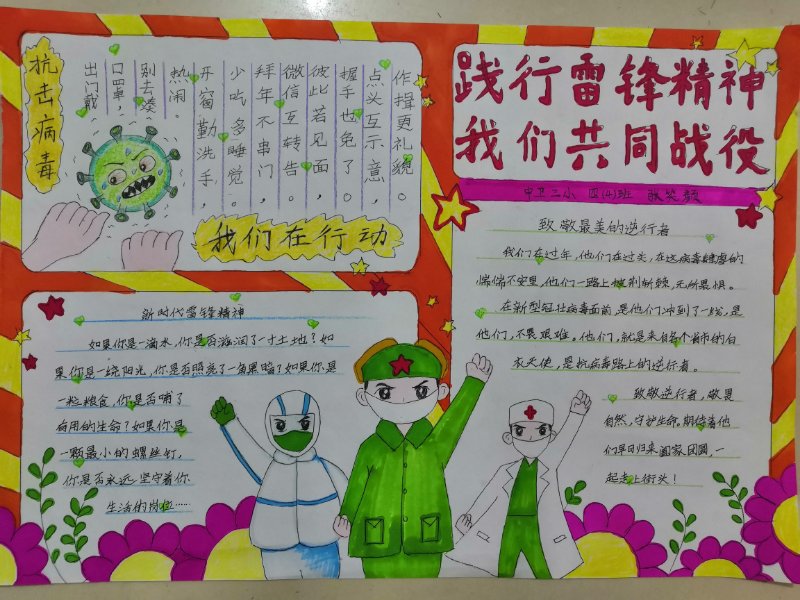 抗击病毒
出门戴
口罩，
别去凑
热闹。
开窗勤洗手，
少吃多睡觉。
拜年不串门，
微信互转告。
彼此若见面，
握手也免了。
点头互示意，
作揖更礼貌。
我们在行动
践行雷锋精神
我们共同战役
中卫二小 四(4)班 张笑颜
致敬最美的逆行者
我们在过年，他们在过关，在这病毒肆虐的
惴惴不安里，他们一路上披荆斩棘，无所畏惧。
在新型冠状病毒面前，是他们冲到了一线，是
他们，不畏艰难。他们，就是来自各个省市的白
衣天使，是抗病毒路上的逆行者。
致敬逆行者，敬畏
自然，守护生命。期待着他
们早日归来阖家团圆，一
起走上街头！
新时代雷锋精神
如果你是一滴水，你是否滋润了一寸土地？如
果你是一线阳光，你是否照亮了一角黑暗？如果你是
一粒粮食，你是否哺育了
有用的生命？如果你是
一颗最小的螺丝钉，
你是否永远坚守着你
生活的岗位……